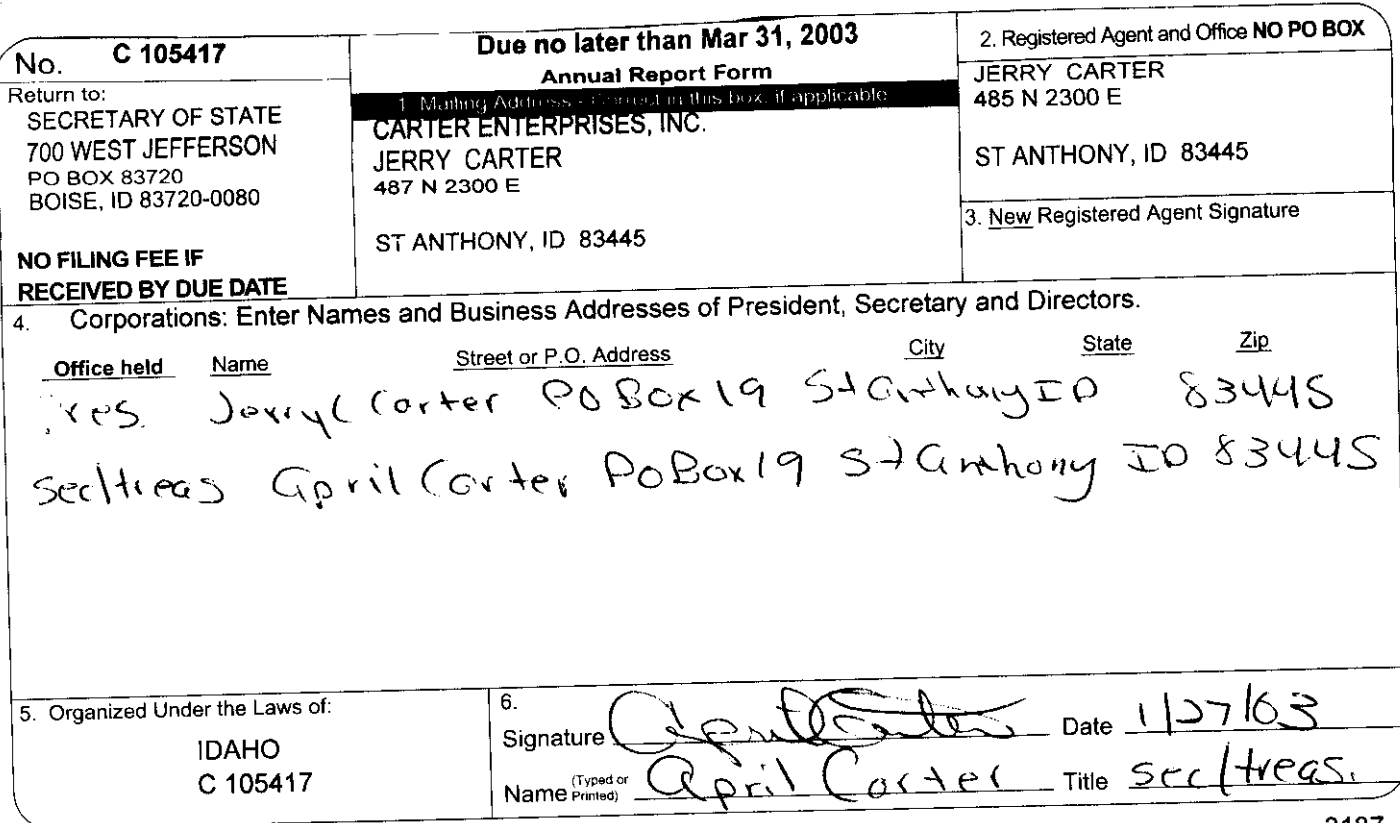 No. C 105417
Return to:
SECRETARY OF STATE
700 WEST JEFFERSON
PO BOX 83720
BOISE, ID 83720-0080
NO FILING FEE IF
RECEIVED BY DUE DATE
Due no later than Mar 31, 2003
Annual Report Form
1. Mailing Address - Correct in this box, if applicable
CARTER ENTERPRISES, INC.
JERRY CARTER
487 N 2300 E
ST ANTHONY, ID 83445
2. Registered Agent and Office NO PO BOX
JERRY CARTER
485 N 2300 E
ST ANTHONY, ID 83445
3. New Registered Agent Signature
4. Corporations: Enter Names and Business Addresses of President, Secretary and Directors.
Office held Name Street or P.O. Address City State Zip
res. Jerry C Carter PO Box 19 St Anthony ID 83445
sec/treas April Carter PO Box 19 St Anthony ID 83445
5. Organized Under the Laws of:
IDAHO
C 105417
6.
Signature April Carter Date 1/27/03
Name (Typed or Printed) April Carter Title sec/treas.